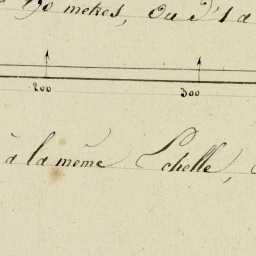 90 metres, ou d'1 a
200 300
à la même Echelle,